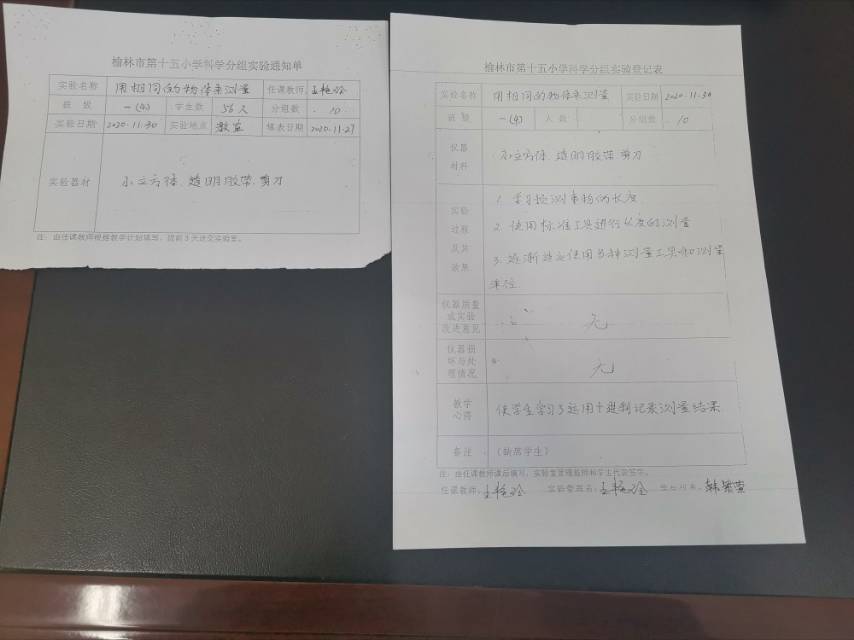 榆林市第十五小学科学分组实验通知单
实验名称 用相同的物体来测量 任课教师 王艳玲
班 级 一(4) 学生数 56人 分组数 10
实验日期 2020.11.30 实验地点 教室 填表日期 2020.11.27
实验器材 小立方体、透明胶带、剪刀
注:由任课教师根据教学计划填写,提前3天送交实验室。
榆林市第十五小学科学分组实验登记表
实验名称 用相同的物体来测量 实验日期 2020.11.30
班 级 一(4) 人 数 分组数 10
仪器
材料
小立方体、透明胶带、剪刀
实验
过程
及其
效果
1. 学习预测事物的长度
2. 使用标准工具进行长度的测量
3. 逐渐适应使用多种测量工具和测量
单位
仪器质量
或实验
改进意见
无
仪器损
坏与处
理情况
无
教学
心得
使学生学习了运用十进制记录测量结果
备注 (缺席学生)
注:由任课教师课后填写,实验室管理教师和学生代表签字。
任课教师:王艳玲 实验管理员:王艳玲 学生代表: